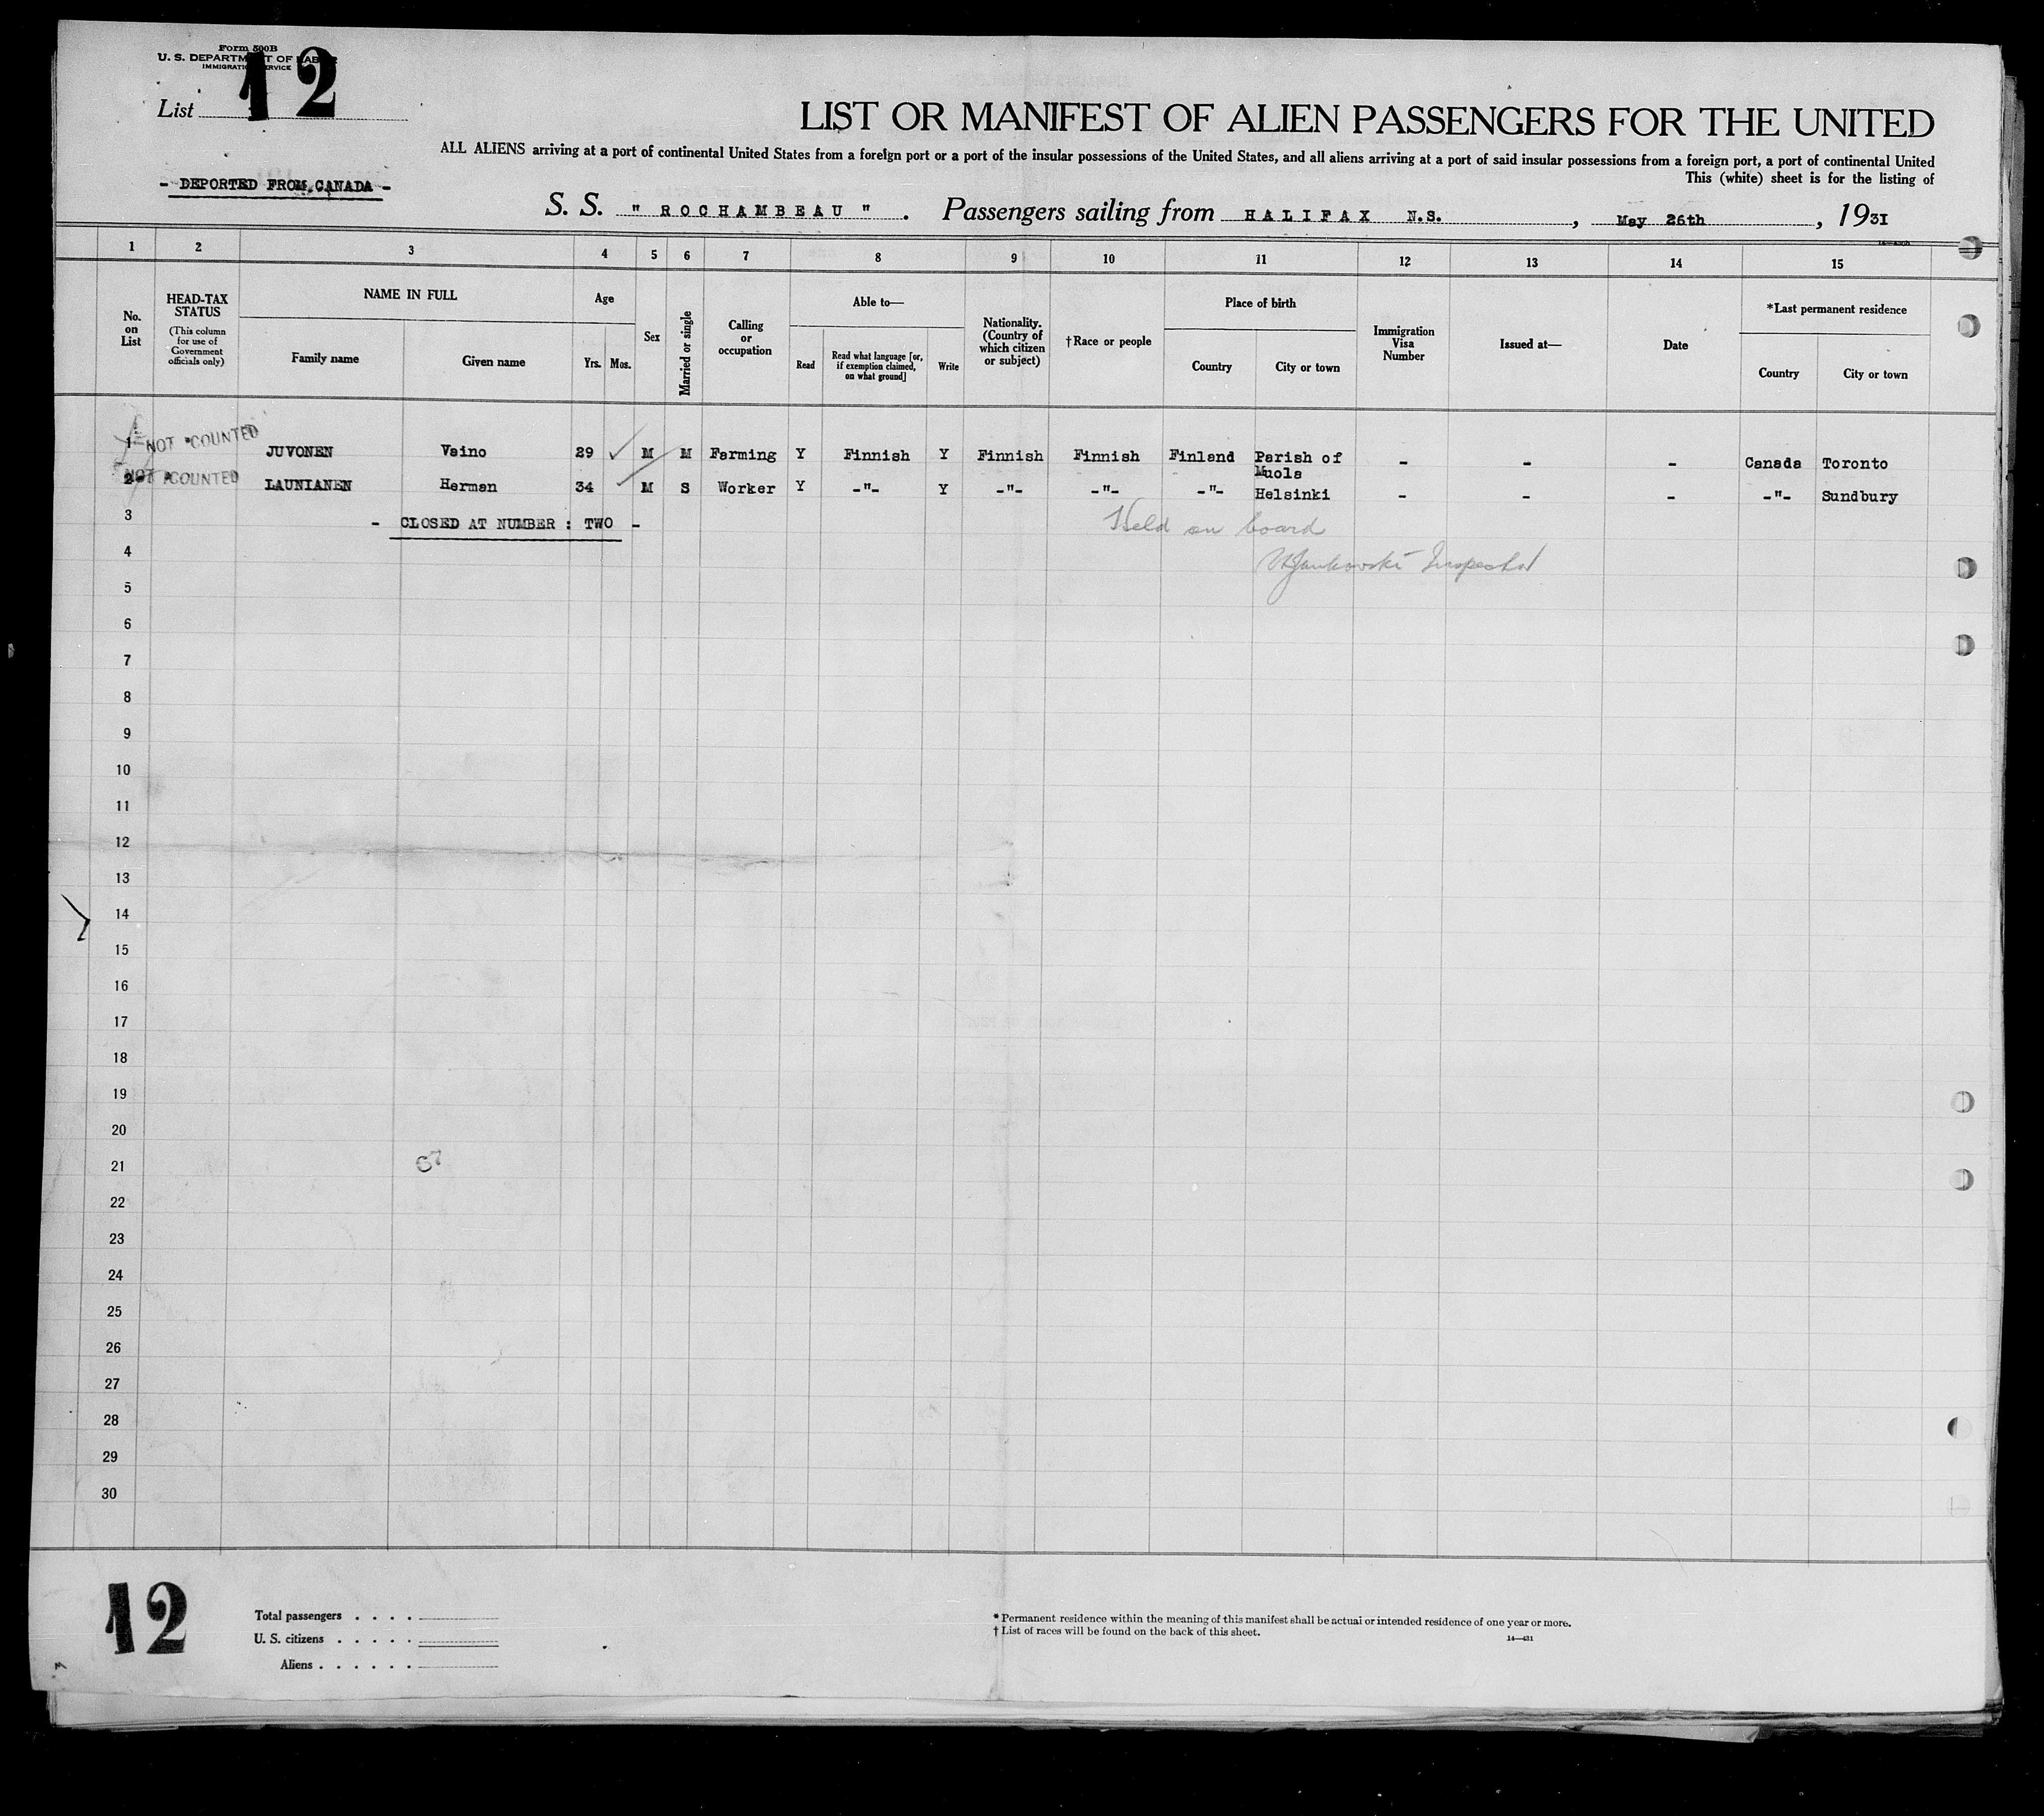 Form 500B
U. S. DEPARTMENT OF LABOR
IMMIGRATION SERVICE
List 12
LIST OR MANIFEST OF ALIEN PASSENGERS FOR THE UNITED
ALL ALIENS arriving at a port of continental United States from a foreign port or a port of the insular possessions of the United States, and all aliens arriving at a port of said insular possessions from a foreign port, a port of continental United
This (white) sheet is for the listing of
- DEPORTED FROM CANADA -
S. S. " ROCHAMBEAU " . Passengers sailing from HALIFAX N.S. , May 26th , 1931
1 2 3 4 5 6 7 8 9 10 11 12 13 14 15
No. on List
HEAD-TAX STATUS
(This column for use of Government officials only)
NAME IN FULL
Family name
Given name
Age
Yrs. Mos.
Sex
Married or single
Calling or occupation
Able to—
Read
Read what language [or, if exemption claimed, on what ground]
Write
Nationality. (Country of which citizen or subject)
†Race or people
Place of birth
Country
City or town
Immigration Visa Number
Issued at—
Date
*Last permanent residence
Country
City or town
1 NOT COUNTED JUVONEN Vaino 29 M M Farming Y Finnish Y Finnish Finnish Finland Parish of Muola - - - Canada Toronto
2 NOT COUNTED LAUNIANEN Herman 34 M S Worker Y -"- Y -"- -"- -"- Helsinki - - - -"- Sundbury
3 - CLOSED AT NUMBER : TWO - Held on board
4 Jankowski Inspector
5
6
7
8
9
10
11
12
13
14
15
16
17
18
19
20
21 67
22
23
24
25
26
27
28
29
30
12
Total passengers . . . .
U. S. citizens . . . . .
Aliens . . . . . .
* Permanent residence within the meaning of this manifest shall be actual or intended residence of one year or more.
† List of races will be found on the back of this sheet.
14—431